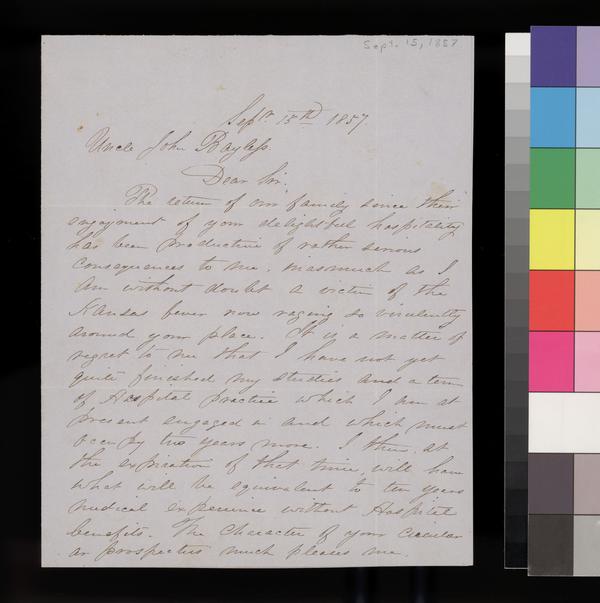 Sept. 15, 1857
Sept 15th 1857.
Uncle John Bayless.
Dear Sir,
The return of our family since their
enjoyment of your delightful hospitality
has been productive of rather serious
consequences to me, inasmuch as I
am without doubt a victim of the
Kansas fever now raging so virulently
around your place. It is a matter of
regret to me that I have not yet
quite finished my studies and a term
of Hospital practice which I am at
present engaged in and which must
occupy two years more. I then, at
the expiration of that time, will have
what will be equivalent to ten years
medical experience without Hospital
benefits. The character of your circular
or prospectus much pleases me.